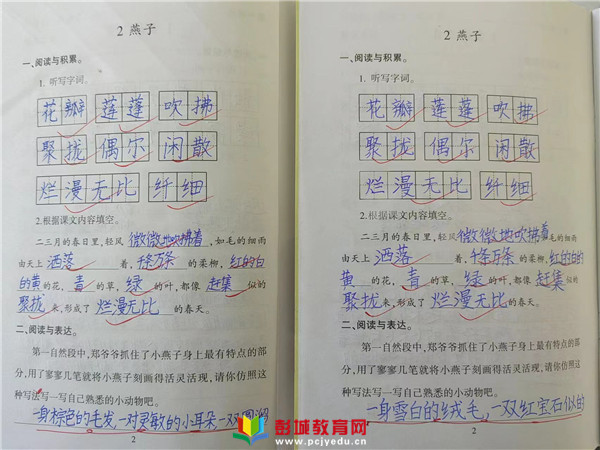 2 燕子
一、阅读与积累。
1. 听写字词。
花瓣 莲蓬 吹拂
聚拢 偶尔 闲散
烂漫无比 纤细
2.根据课文内容填空。
二三月的春日里，轻风微微地吹拂着，如毛的细雨
由天上洒落着，千条万条的柔柳，红的白
的黄的花，青的草，绿的叶，都像赶集似的
聚拢来，形成了烂漫无比的春天。
二、阅读与表达。
第一自然段中，郑爷爷抓住了小燕子身上最有特点的部
分，用了寥寥几笔就将小燕子刻画得活灵活现，请你仿照这
种写法写一写自己熟悉的小动物吧。
一身棕色的毛发，一对灵敏的小耳朵一双圆溜
2
2 燕子
一、阅读与积累。
1. 听写字词。
花瓣 莲蓬 吹拂
聚拢 偶尔 闲散
烂漫无比 纤细
2.根据课文内容填空。
二三月的春日里，轻风微微地吹拂着如毛的细雨
由天上洒落着，千条万条的柔柳，红的白的
黄的花，青的草，绿的叶，都像赶集似的
聚拢来，形成了烂漫无比的春天。
二、阅读与表达。
第一自然段中，郑爷爷抓住了小燕子身上最有特点的部
分，用了寥寥几笔就将小燕子刻画得活灵活现，请你仿照这
种写法写一写自己熟悉的小动物吧。
一身雪白的绒毛，一双红宝石似的
2
彭城教育网
www.pcjyedu.cn